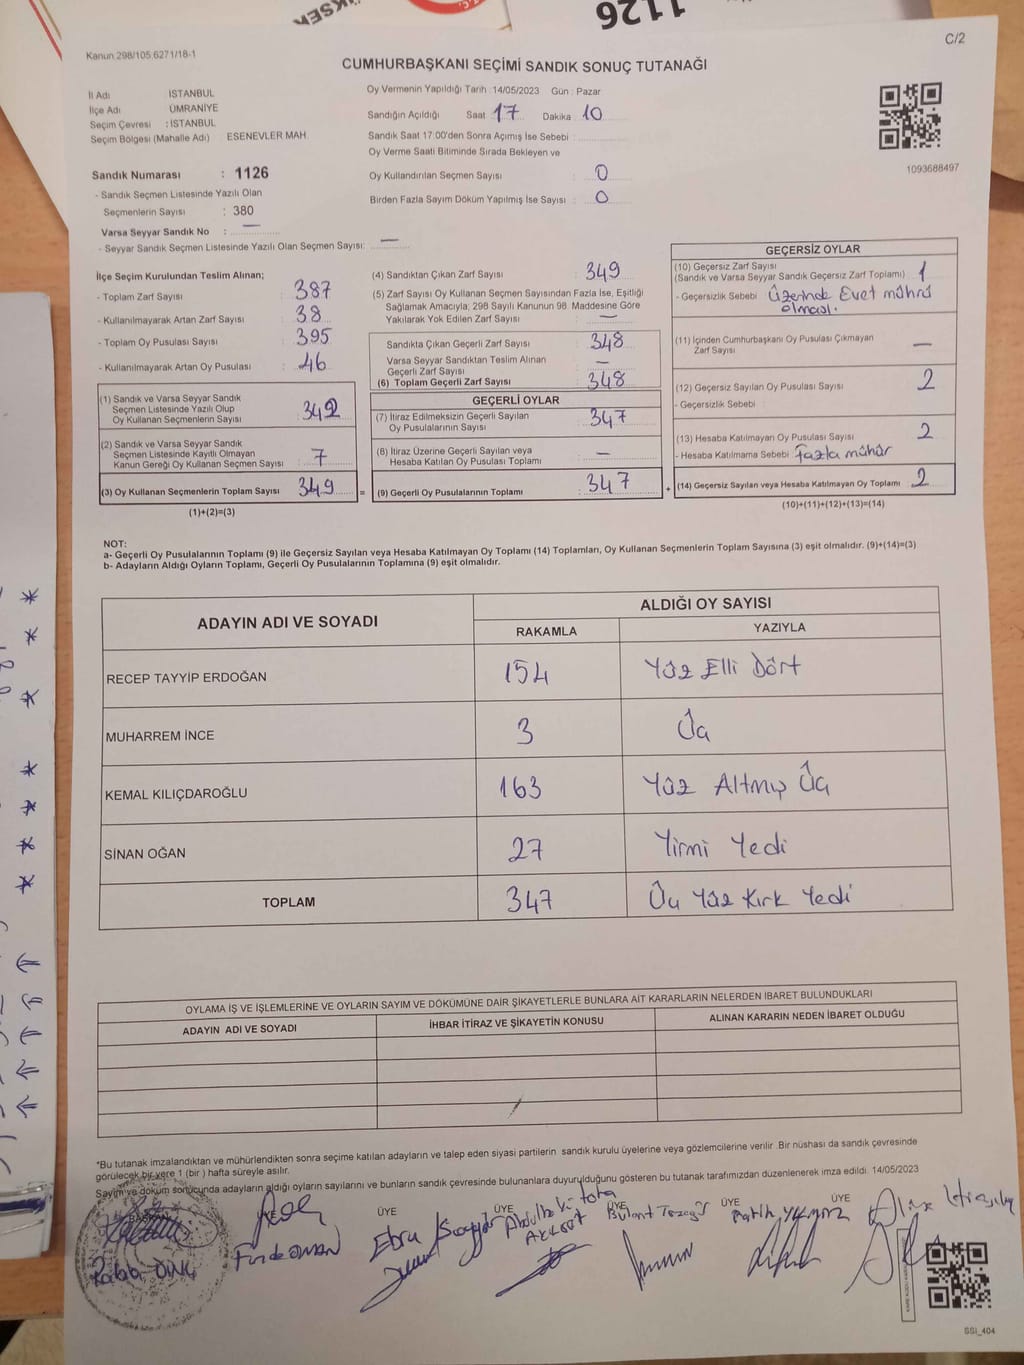 1126
C/2
Kanun 298/105,6271/18-1
CUMHURBAŞKANI SEÇİMİ SANDIK SONUÇ TUTANAĞI
İl Adı İSTANBUL
İlçe Adı ÜMRANİYE
Seçim Çevresi : İSTANBUL
Seçim Bölgesi (Mahalle Adı) ESENEVLER MAH.
Oy Vermenin Yapıldığı Tarih :14/05/2023 Gün : Pazar
Sandığın Açıldığı Saat 17 Dakika 10
Sandık Saat 17:00'den Sonra Açımış İse Sebebi :
Oy Verme Saati Bitiminde Sırada Bekleyen ve
Oy Kullandırılan Seçmen Sayısı : 0
Birden Fazla Sayım Döküm Yapılmış İse Sayısı : 0
1093688497
Sandık Numarası : 1126
- Sandık Seçmen Listesinde Yazılı Olan
Seçmenlerin Sayısı : 380
Varsa Seyyar Sandık No : —
- Seyyar Sandık Seçmen Listesinde Yazılı Olan Seçmen Sayısı: —
İlçe Seçim Kurulundan Teslim Alınan;
- Toplam Zarf Sayısı : 387
- Kullanılmayarak Artan Zarf Sayısı : 38
- Toplam Oy Pusulası Sayısı : 395
- Kullanılmayarak Artan Oy Pusulası : 46
(1) Sandık ve Varsa Seyyar Sandık
Seçmen Listesinde Yazılı Olup
Oy Kullanan Seçmenlerin Sayısı : 342
(2) Sandık ve Varsa Seyyar Sandık
Seçmen Listesinde Kayıtlı Olmayan
Kanun Gereği Oy Kullanan Seçmen Sayısı : 7
(3) Oy Kullanan Seçmenlerin Toplam Sayısı 349 =
(1)+(2)=(3)
(4) Sandıktan Çıkan Zarf Sayısı : 349
(5) Zarf Sayısı Oy Kullanan Seçmen Sayısından Fazla İse, Eşitliği
Sağlamak Amacıyla; 298 Sayılı Kanunun 98. Maddesine Göre
Yakılarak Yok Edilen Zarf Sayısı : —
Sandıkta Çıkan Geçerli Zarf Sayısı : 348
Varsa Seyyar Sandıktan Teslim Alınan
Geçerli Zarf Sayısı : —
(6) Toplam Geçerli Zarf Sayısı : 348
GEÇERLİ OYLAR
(7) İtiraz Edilmeksizin Geçerli Sayılan
Oy Pusulalarının Sayısı : 347
(8) İtiraz Üzerine Geçerli Sayılan veya
Hesaba Katılan Oy Pusulası Toplamı : —
(9) Geçerli Oy Pusulalarının Toplamı : 347 +
GEÇERSİZ OYLAR
(10) Geçersiz Zarf Sayısı
(Sandık ve Varsa Seyyar Sandık Geçersiz Zarf Toplamı) 1
- Geçersizlik Sebebi : Üzerinde Evet mührü
olması.
(11) İçinden Cumhurbaşkanı Oy Pusulası Çıkmayan
Zarf Sayısı : —
(12) Geçersiz Sayılan Oy Pusulası Sayısı : 2
- Geçersizlik Sebebi :
(13) Hesaba Katılmayan Oy Pusulası Sayısı : 2
- Hesaba Katılmama Sebebi : fazla mühür
(14) Geçersiz Sayılan veya Hesaba Katılmayan Oy Toplamı : 2
(10)+(11)+(12)+(13)=(14)
NOT:
a- Geçerli Oy Pusulalarının Toplamı (9) ile Geçersiz Sayılan veya Hesaba Katılmayan Oy Toplamı (14) Toplamları, Oy Kullanan Seçmenlerin Toplam Sayısına (3) eşit olmalıdır. (9)+(14)=(3)
b- Adayların Aldığı Oyların Toplamı, Geçerli Oy Pusulalarının Toplamına (9) eşit olmalıdır.
ADAYIN ADI VE SOYADI ALDIĞI OY SAYISI
RAKAMLA YAZIYLA
RECEP TAYYİP ERDOĞAN 154 Yüz Elli Dört
MUHARREM İNCE 3 Üç
KEMAL KILIÇDAROĞLU 163 Yüz Altmış Üç
SİNAN OĞAN 27 Yirmi Yedi
TOPLAM 347 Üç Yüz Kırk Yedi
OYLAMA İŞ VE İŞLEMLERİNE VE OYLARIN SAYIM VE DÖKÜMÜNE DAİR ŞİKAYETLERLE BUNLARA AİT KARARLARIN NELERDEN İBARET BULUNDUKLARI
ADAYIN ADI VE SOYADI İHBAR İTİRAZ VE ŞİKAYETİN KONUSU ALINAN KARARIN NEDEN İBARET OLDUĞU
*Bu tutanak imzalandıktan ve mühürlendikten sonra seçime katılan adayların ve talep eden siyasi partilerin sandık kurulu üyelerine veya gözlemcilerine verilir .Bir nüshası da sandık çevresinde
görülecek bir yere 1 (bir ) hafta süreyle asılır.
Sayım ve döküm sonucunda adayların aldığı oyların sayılarını ve bunların sandık çevresinde bulunanlara duyurulduğunu gösteren bu tutanak tarafımızdan düzenlenerek imza edildi. 14/05/2023
BAŞKAN ÜYE ÜYE ÜYE ÜYE ÜYE
SSI_404